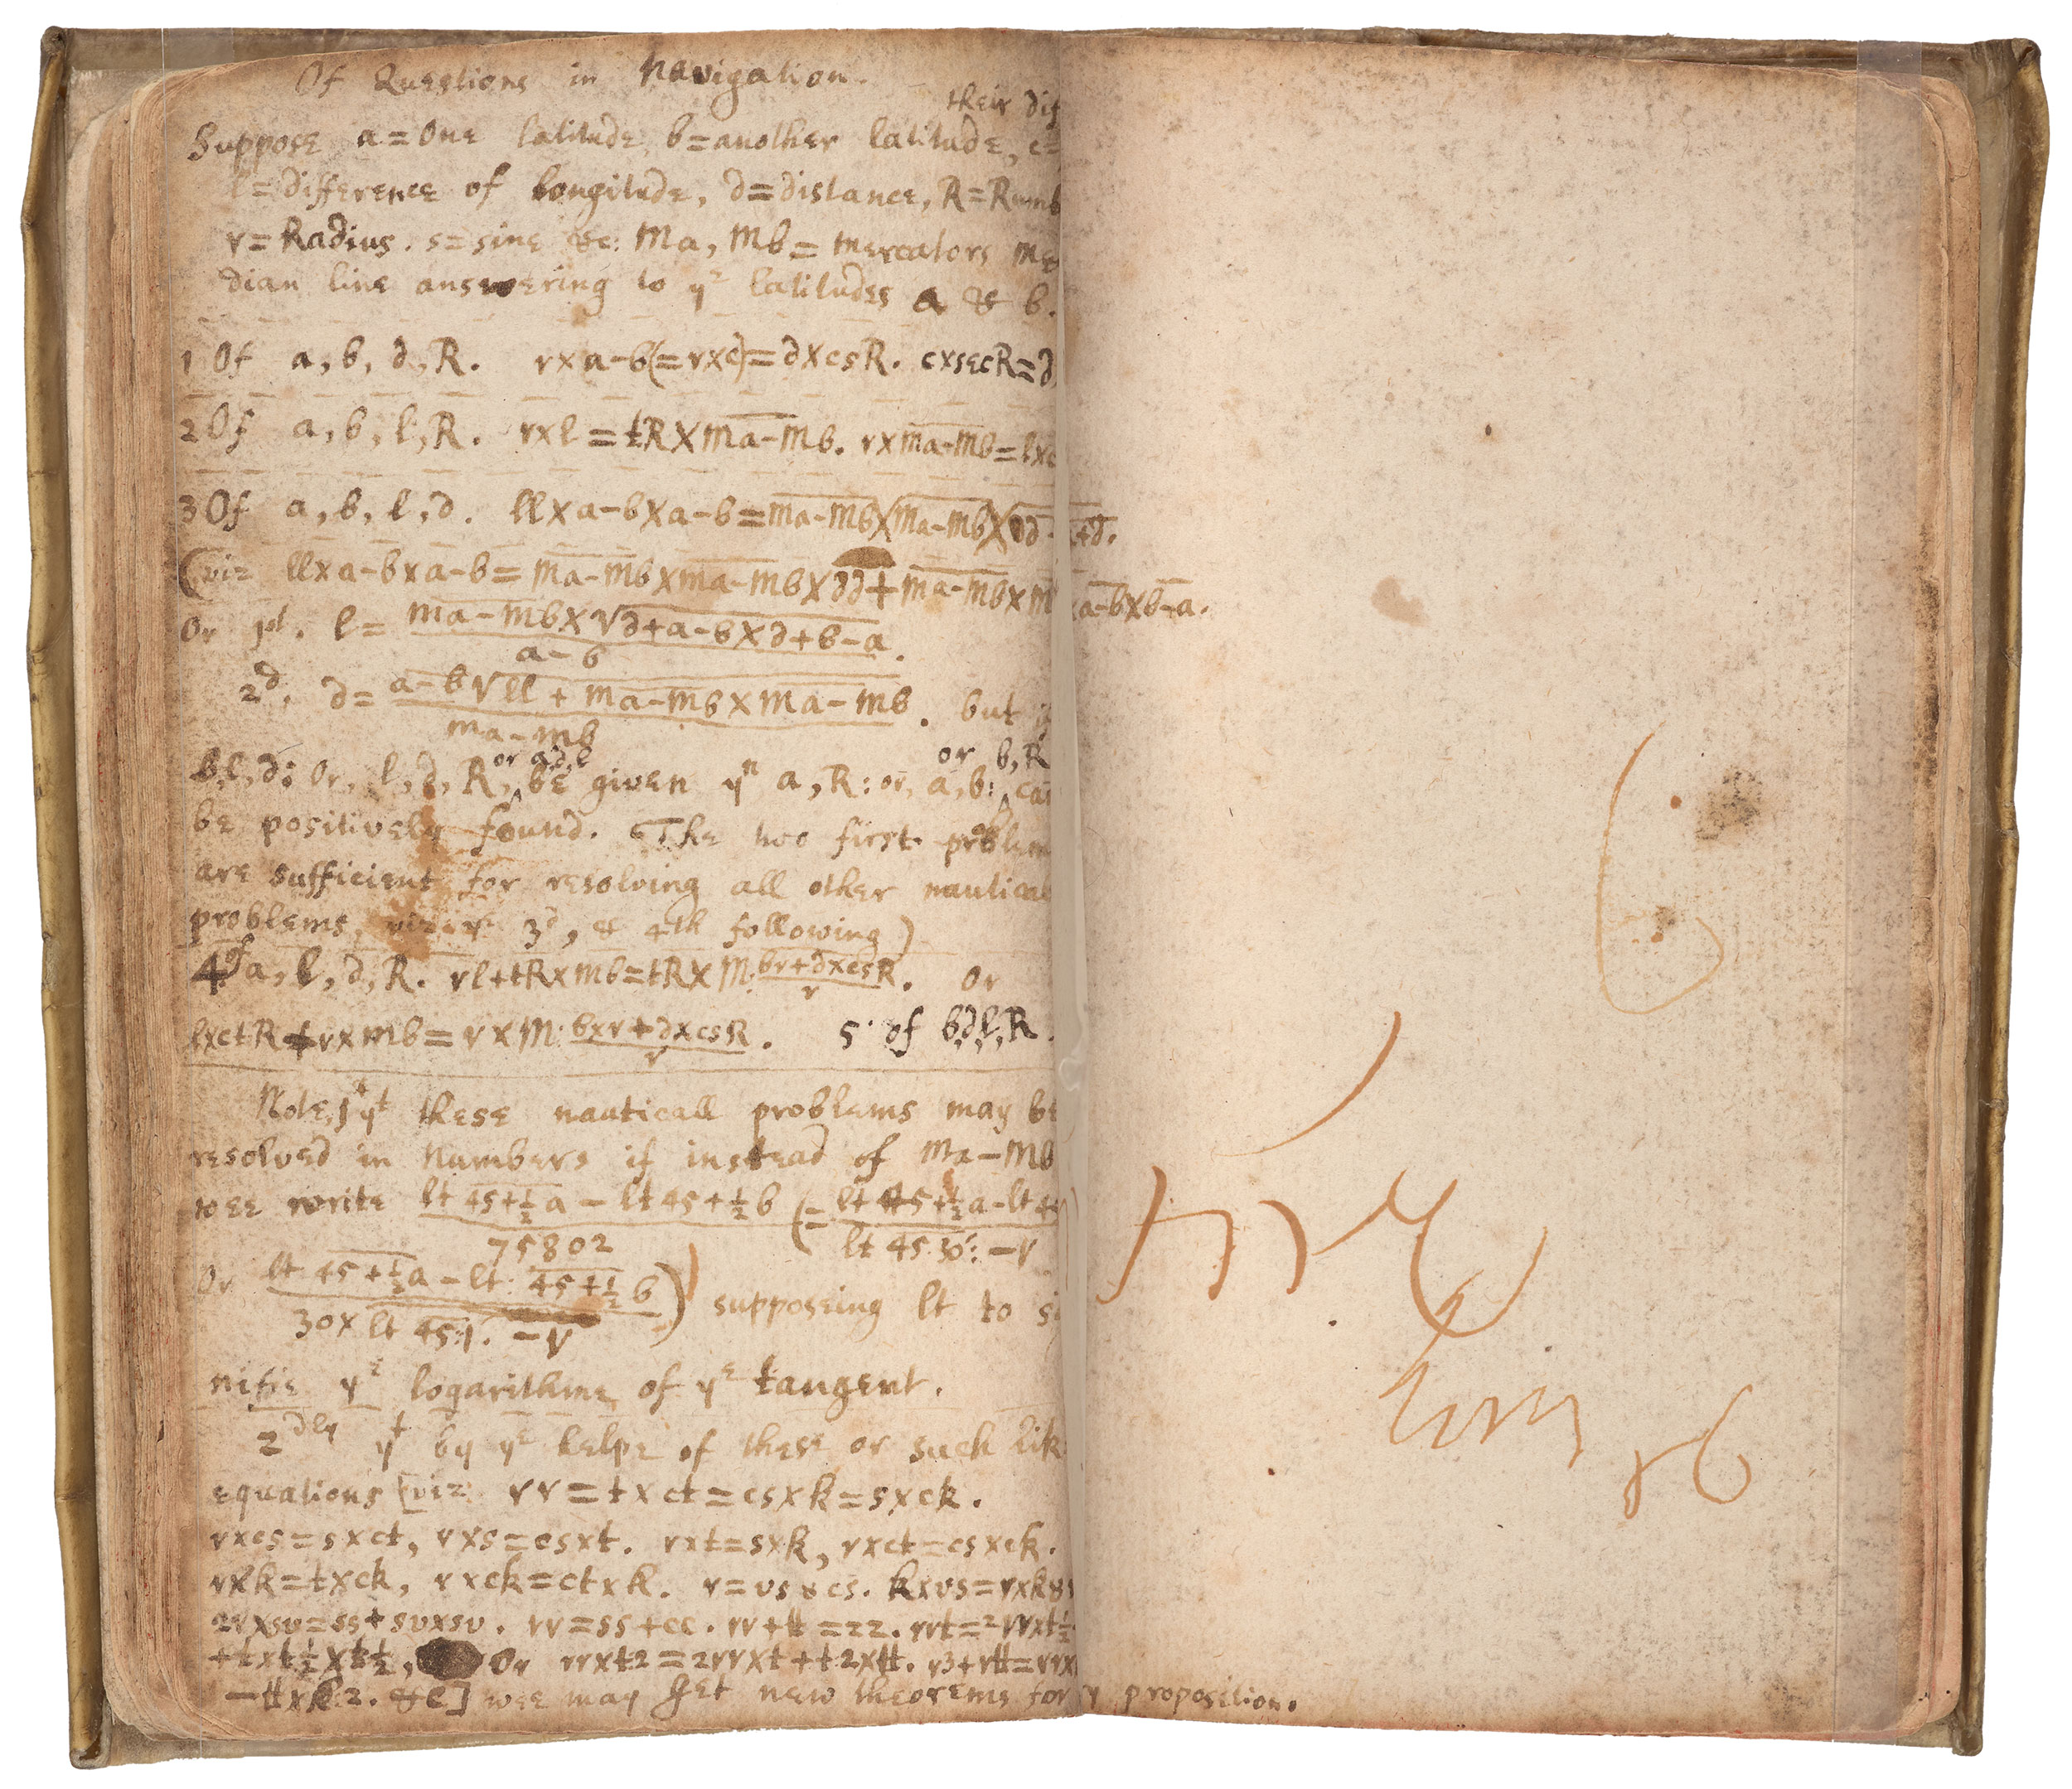 Of Questions in Navigation.
their dif
Suppose a=One latitude, b=another latitude, c=
l=difference of longitude, d=distance, R=Rumb
r=Radius. s=sine &c: Ma, Mb= Mercators me
dian line answering to yᵉ latitudes a & b.
1 Of a, b, d, R. r×a-b(=r×c)=d×csR. c×secR=d
2 Of a, b, l, R. r×l=tR×Ma-Mb. r×Ma-Mb=l×c
3 Of a, b, l, d. ll×a-b×a-b=Ma-Mb×Ma-Mb×dd
(viz ll×a-b×a-b=Ma-Mb×Ma-Mb×dd+Ma-Mb×M ×a-b×b-a.
Or 1st. l= Ma-Mb×√d+a-b×d+b-a
a-b .
2d. d= a-b√ll+Ma-Mb×Ma-Mb . but
Ma-Mb
or a,d,l or b,R
b,l,d: Or, l,d,R, be given yⁿ a,R: or, a,b: can
be positively found. The two first problem
are sufficient for resolving all other nautical
problems, viz yᵉ 3d, & 4th following)
4 Of a, l, d, R. rl+tR×Mb=tR×M: br+d×csR . Or
r
l×ctR+r×Mb=r×M: b×r+d×csR . 5. of b,d,l,R.
r
Note, 1st yᵗ these nauticall problems may be
resolved in numbers if instead of Ma-Mb
wee write lt 45+½a - lt 45+½b (= lt 45+½a-lt 45
75802 lt 45 30': -r
Or lt 45+½a - lt: 45+½b ) supposeing lt to si
30× lt 45:1'. -r
nifie yᵉ logarithme of yᵉ tangent.
2dly yᵗ by yᵉ helpe of these or such like
equations [viz: rr=t×ct=cs×k=s×ck.
r×cs=s×ct, r×s=cs×t. r×t=s×k, r×ct=cs×ck.
r×k=t×ck, r×ck=ct×k. r=vs&cs. k×vs=r×k&
2r×sv=ss+sv×sv. rr=ss+cc. rr+tt=zz. rrt=2rr×t½
+t×t½×t½, Or rr×t2=2rr×t+t2×tt. r3+rtt=rr×
-tt×k2. &c] wee may get new theorems for yᵉ proposition.